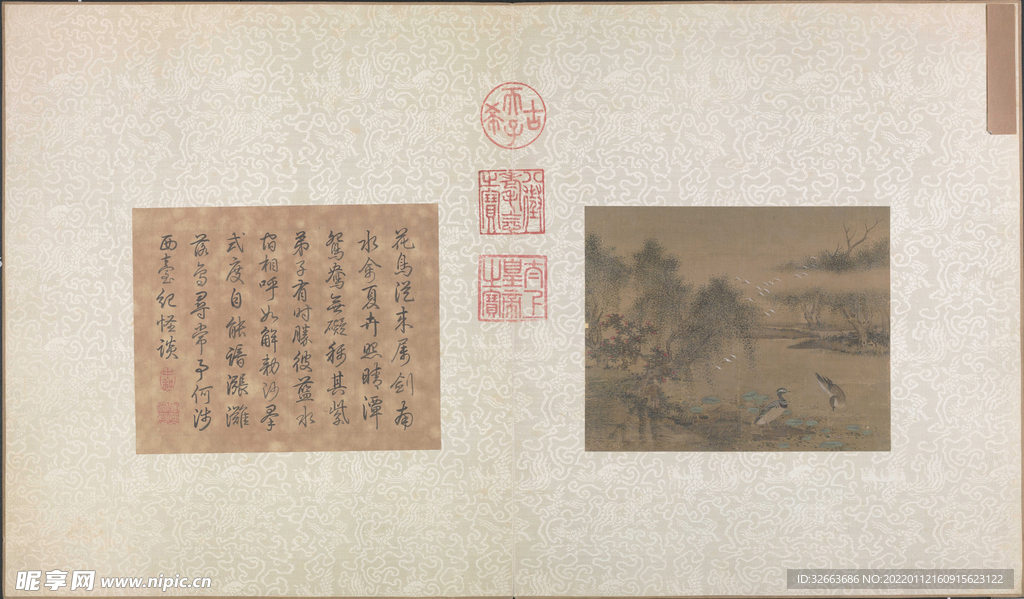 花鳥從來屬劍南
水禽夏卉照晴潭
鴛鴦無礙稱其紫
弟子有時勝彼藍水
宿相呼如解勅沙羣
式度自能諳漲灘
落鳥尋常事何涉
西臺紀怪談
古希天子
八徵耄念之寶
太上皇帝之寶
昵享网 www.nipic.cn
ID:32663686 NO:20220112160915623122